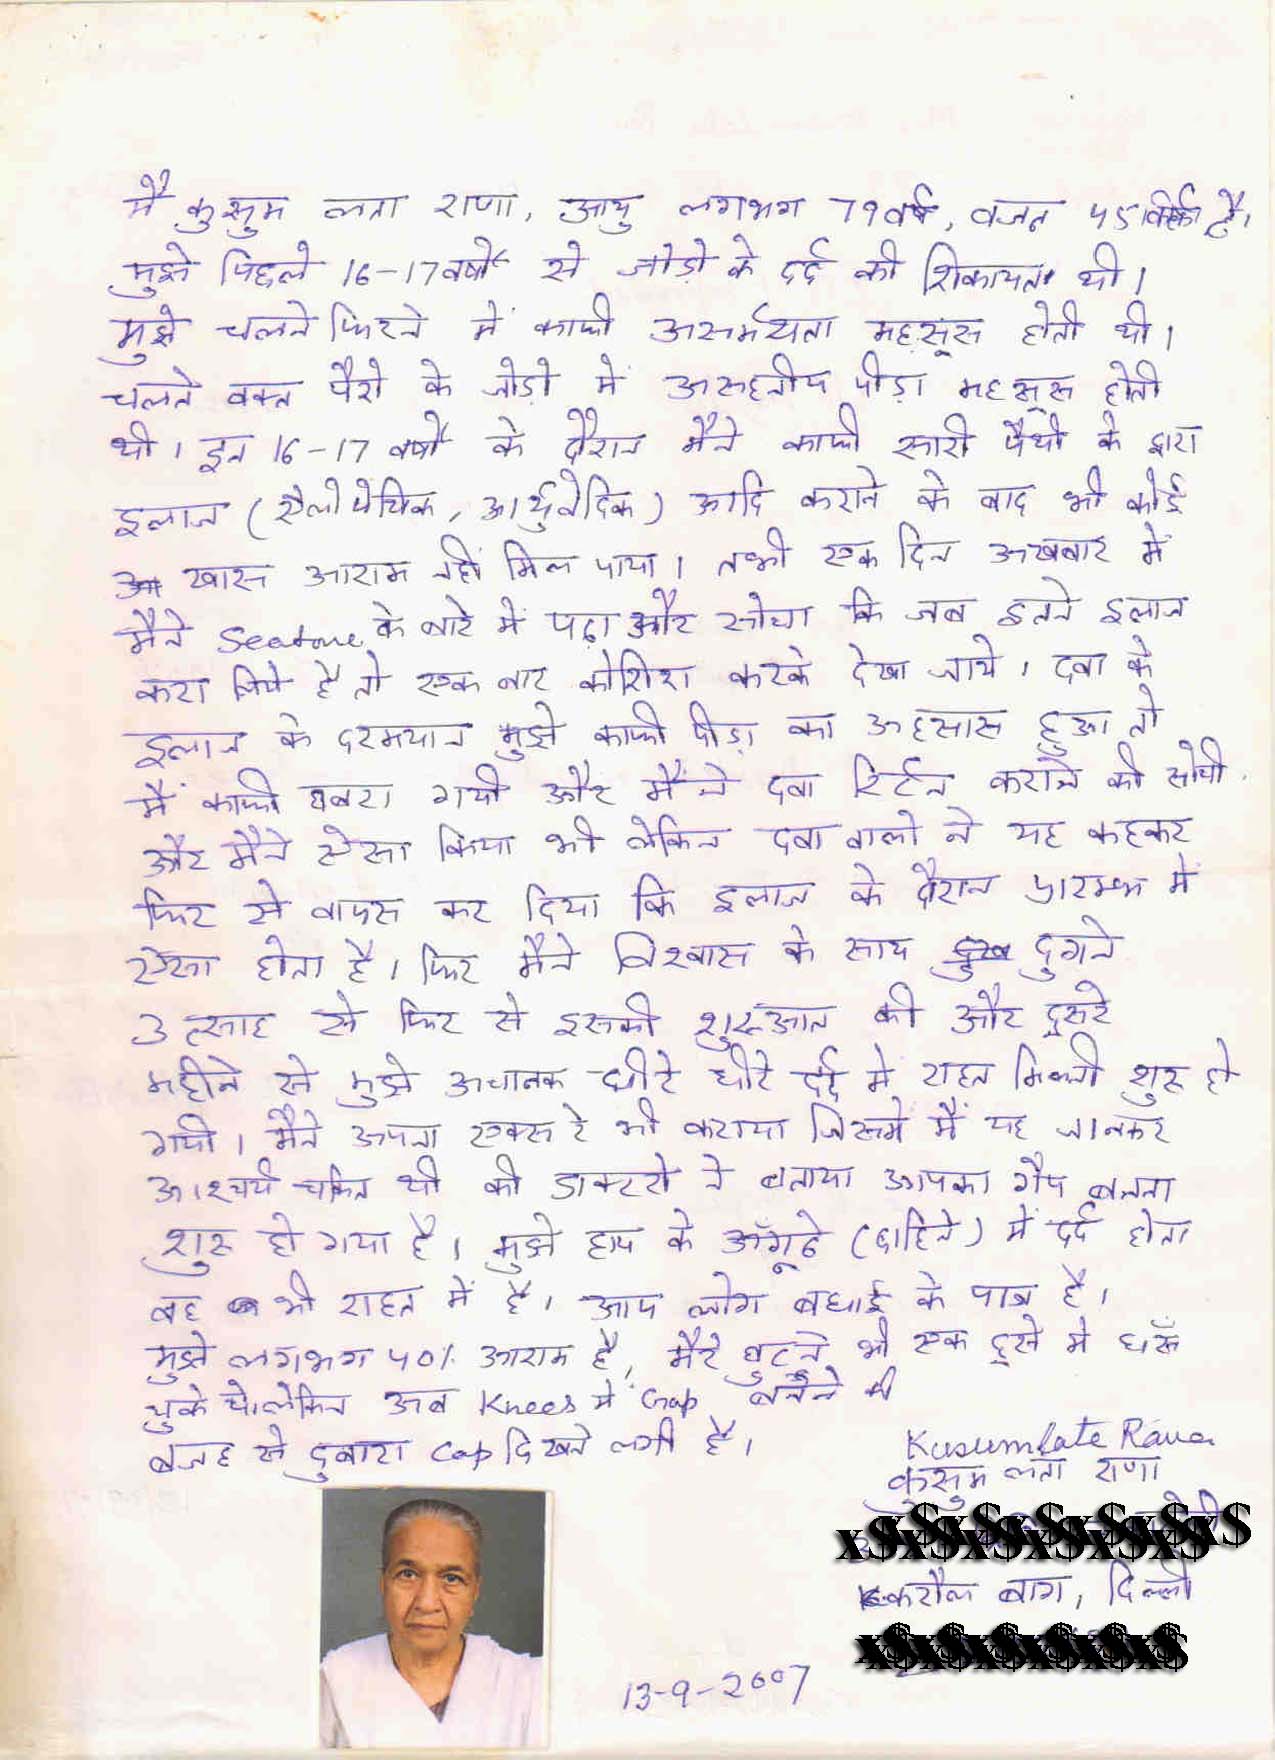 मैं कुसुम लता राणा, आयु लगभग 79 वर्ष, वजन 45 किग्रा है।
मुझे पिछले 16-17 वर्षों से जोड़ो के दर्द की शिकायत थी।
मुझे चलने फिरने में काफी असर्मथता महसूस होती थी।
चलते वक्त पैरो के जोड़ो में असहनीय पीड़ा महसूस होती
थी। इन 16-17 वर्षों के दौरान मैने काफी सारी पैथी के द्वारा
इलाज (ऐलोपेथिक, आर्युवेदिक) आदि कराने के बाद भी कोई
खास आराम नहीं मिल पाया। तभी एक दिन अखबार में
मैने Seatone के बारे में पढ़ा और सोचा कि जब इतने इलाज
करा लिये है तो एक बार कोशिश करके देखा जाये। दवा के
इलाज के दरमयान मुझे काफी पीड़ा का अहसास हुआ तो
मैं काफी घबरा गयी और मैंने दवा रिर्टन कराने की सोची
और मैने ऐसा किया भी लेकिन दवा वालो ने यह कहकर
फिर से वापस कर दिया कि इलाज के दौरान प्रारम्भ में
ऐसा होता है। फिर मैने विश्वास के साथ दुगने
उत्साह से फिर से इसकी शुरूआत की और दूसरे
महीने से मुझे अचानक धीरे धीरे दर्द में राहत मिलनी शुरू हो
गयी। मैने अपना एक्स रे भी कराया जिसमें मैं यह जानकर
आश्चर्य चकित थी की डाक्टरो ने बताया आपका गैप बनना
शुरू हो गया है। मुझे हाथ के अँगूठे (दाहिने) में दर्द होता
वह भी राहत में है। आप लोग बधाई के पात्र है।
मुझे लगभग 40% आराम है, मेरे घुटने भी एक दूसे मे धँस
चुके थे। लेकिन अब Knees में Gap बनने की
वजह से दुबारा Gap दिखने लगी है।
Kusumlata Rana
कुसुम लता राणा
करौल बाग, दिल्ली
13-9-2007